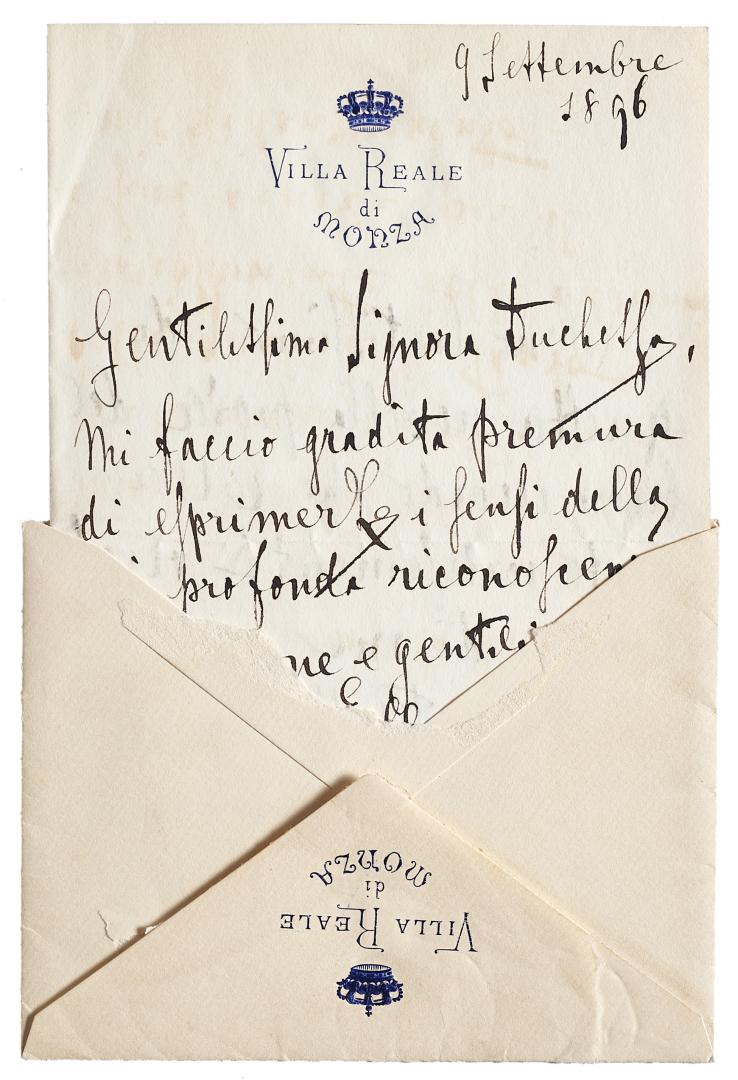 9 Settembre
1896
VILLA REALE
di
MONZA
Gentilissima Signora Duchessa,
Mi faccio gradita premura
di esprimerLe i sensi della
profonda
e gentili
VILLA REALE
di
MONZA